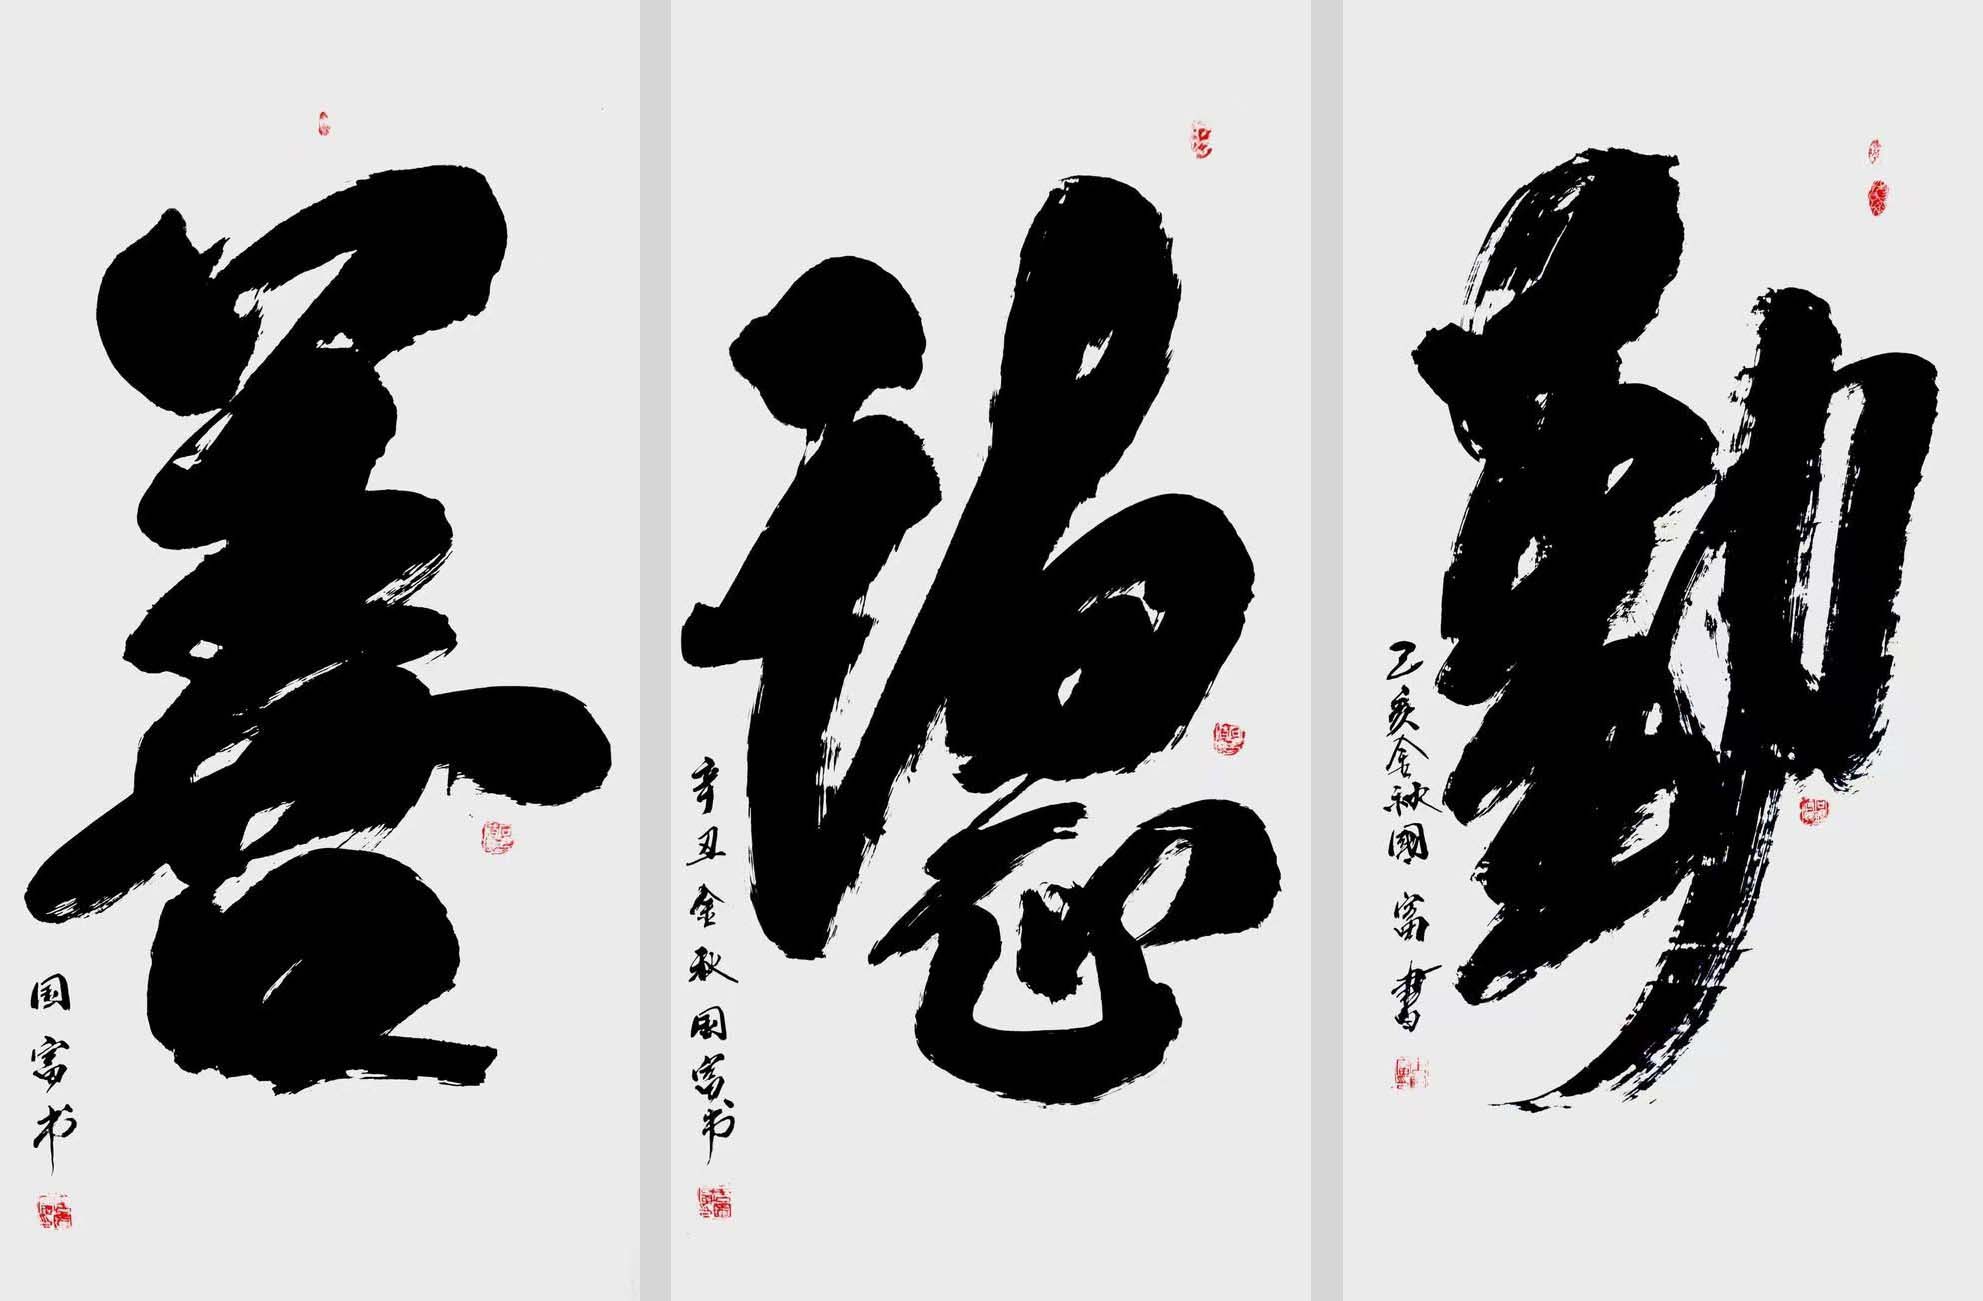 善
国富书
德
辛丑金秋国富书
勤
己亥金秋國富書